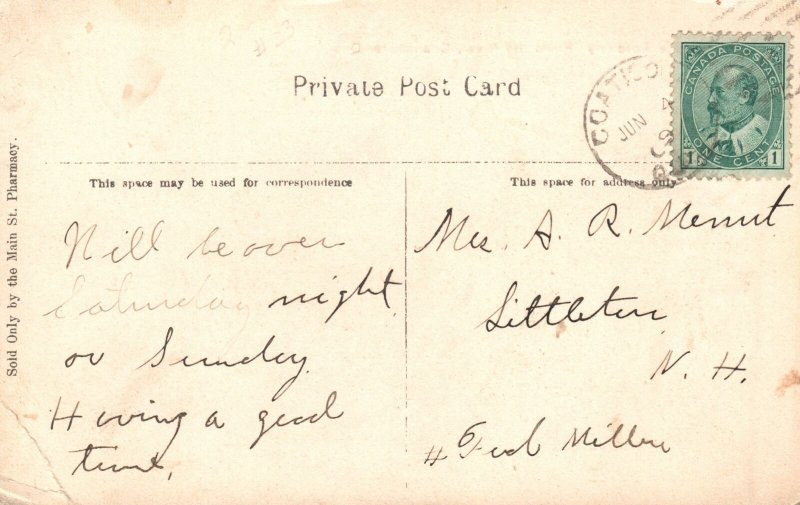 Private Post Card
CANADA POSTAGE
1 ONE CENT 1
COATICO
JUN
This space may be used for correspondence
This space for address only
Sold Only by the Main St. Pharmacy.
Will be over
Saturday night
or Sunday.
Having a good
time,
Mrs. A. R. Merrut
Littleton
N. H.